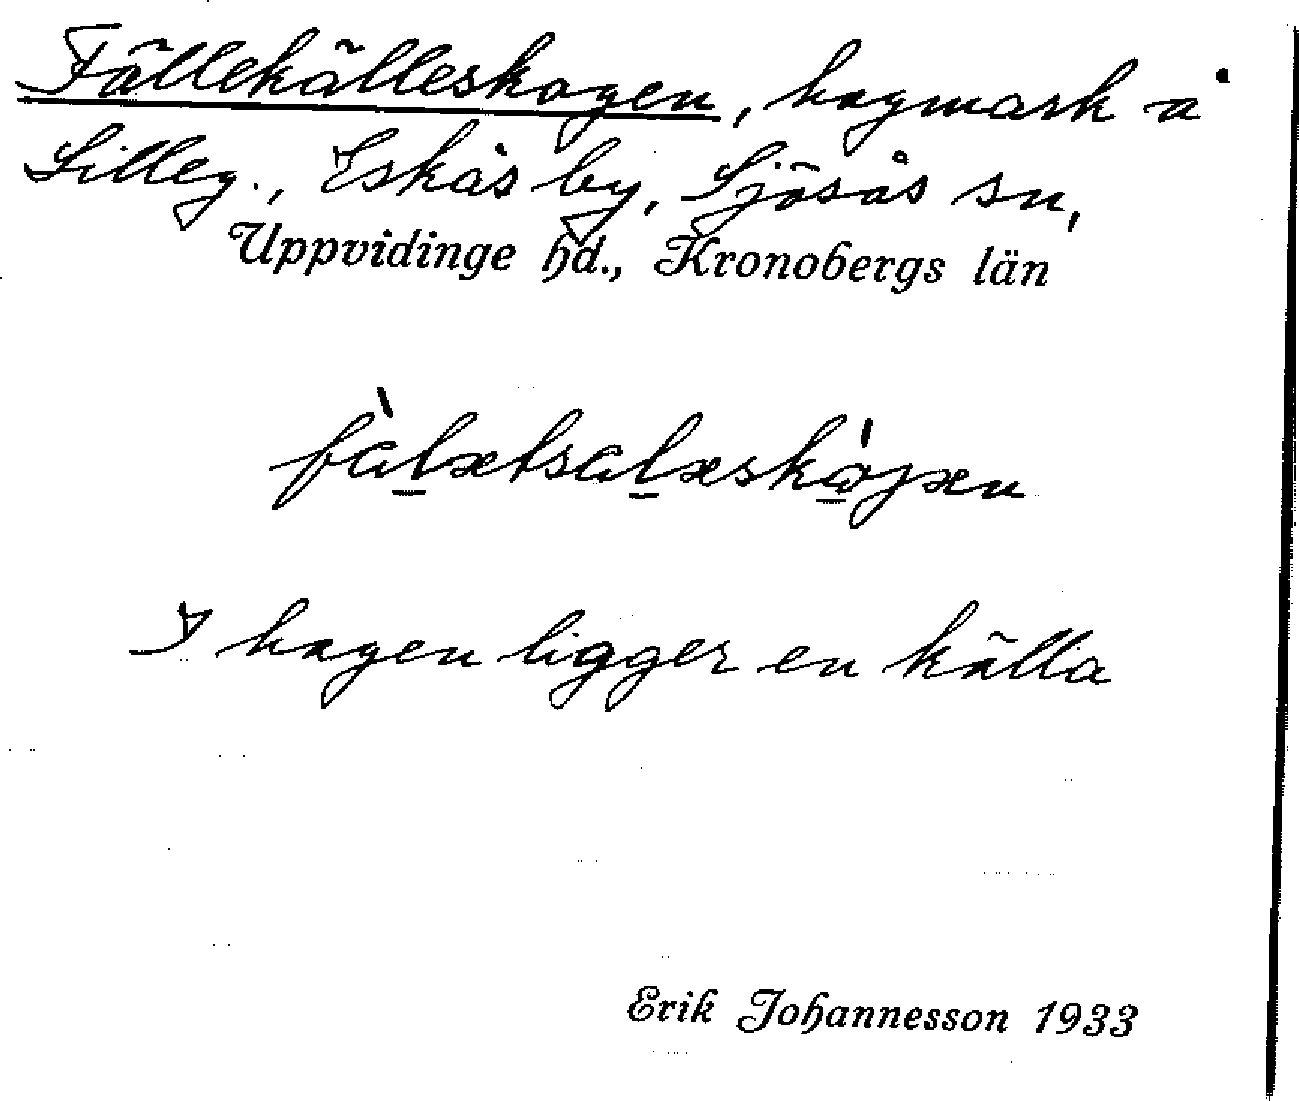 Fällekälleskogen, hagmark å
Lilleg., Eskås by, Sjösås sn,
Uppvidinge hd., Kronobergs län
I hagen ligger en källa
Erik Johannesson 1933